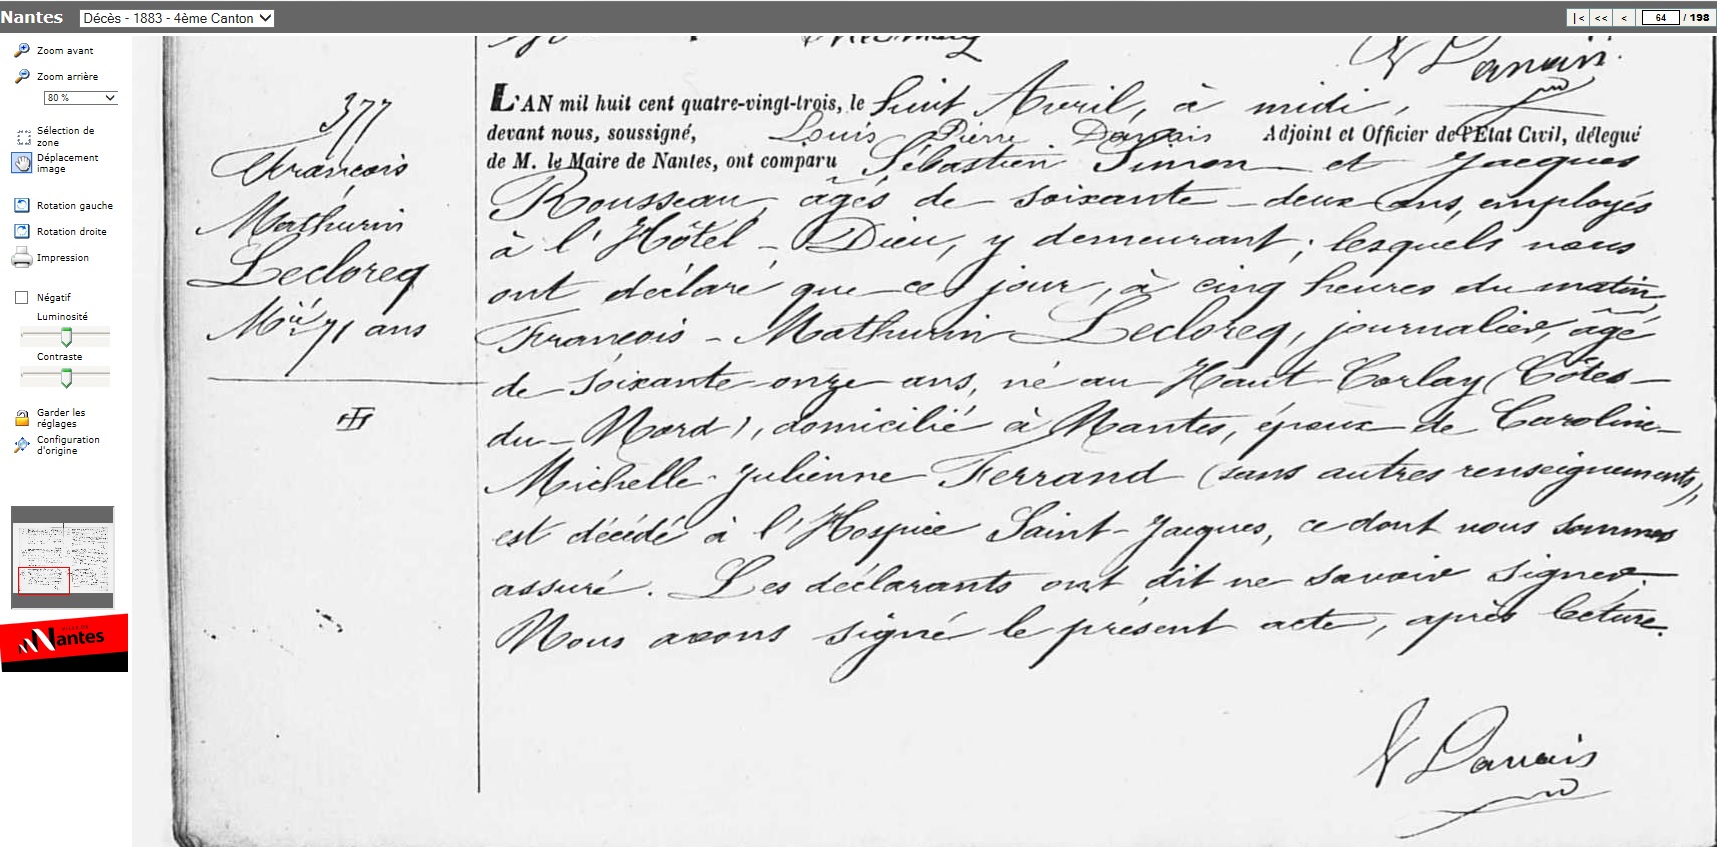 Nantes
Décès - 1883 - 4ème Canton
|< << < 64 / 198
Zoom avant
Zoom arrière
80 %
Sélection de
zone
Déplacement
image
Rotation gauche
Rotation droite
Impression
Négatif
Luminosité
Contraste
Garder les
réglages
Configuration
d'origine
Nantes
377
François
Mathurin
Leclorcq
Mié 71 ans
L'AN mil huit cent quatre-vingt-trois, le huit Avril, à midi,
devant nous, soussigné, Louis Pierre Danais Adjoint et Officier de l'Etat Civil, délégué
de M. le Maire de Nantes, ont comparu Sébastien Simon et Jacques
Rousseau, âgés de soixante-deux ans, employés
à l'Hôtel-Dieu, y demeurant; lesquels nous
ont déclaré que ce jour, à cinq heures du matin,
François-Mathurin Leclorcq, journalier, âgé
de soixante-onze ans, né au Haut-Corlay (Côtes-
du-Nord), domicilié à Nantes, époux de Caroline-
Michelle-Julienne Ferrand (sans autres renseignements),
est décédé à l'Hospice Saint-Jacques, ce dont nous sommes
assuré. Les déclarants ont dit ne savoir signer.
Nous avons signé le présent acte, après lecture.
Danais